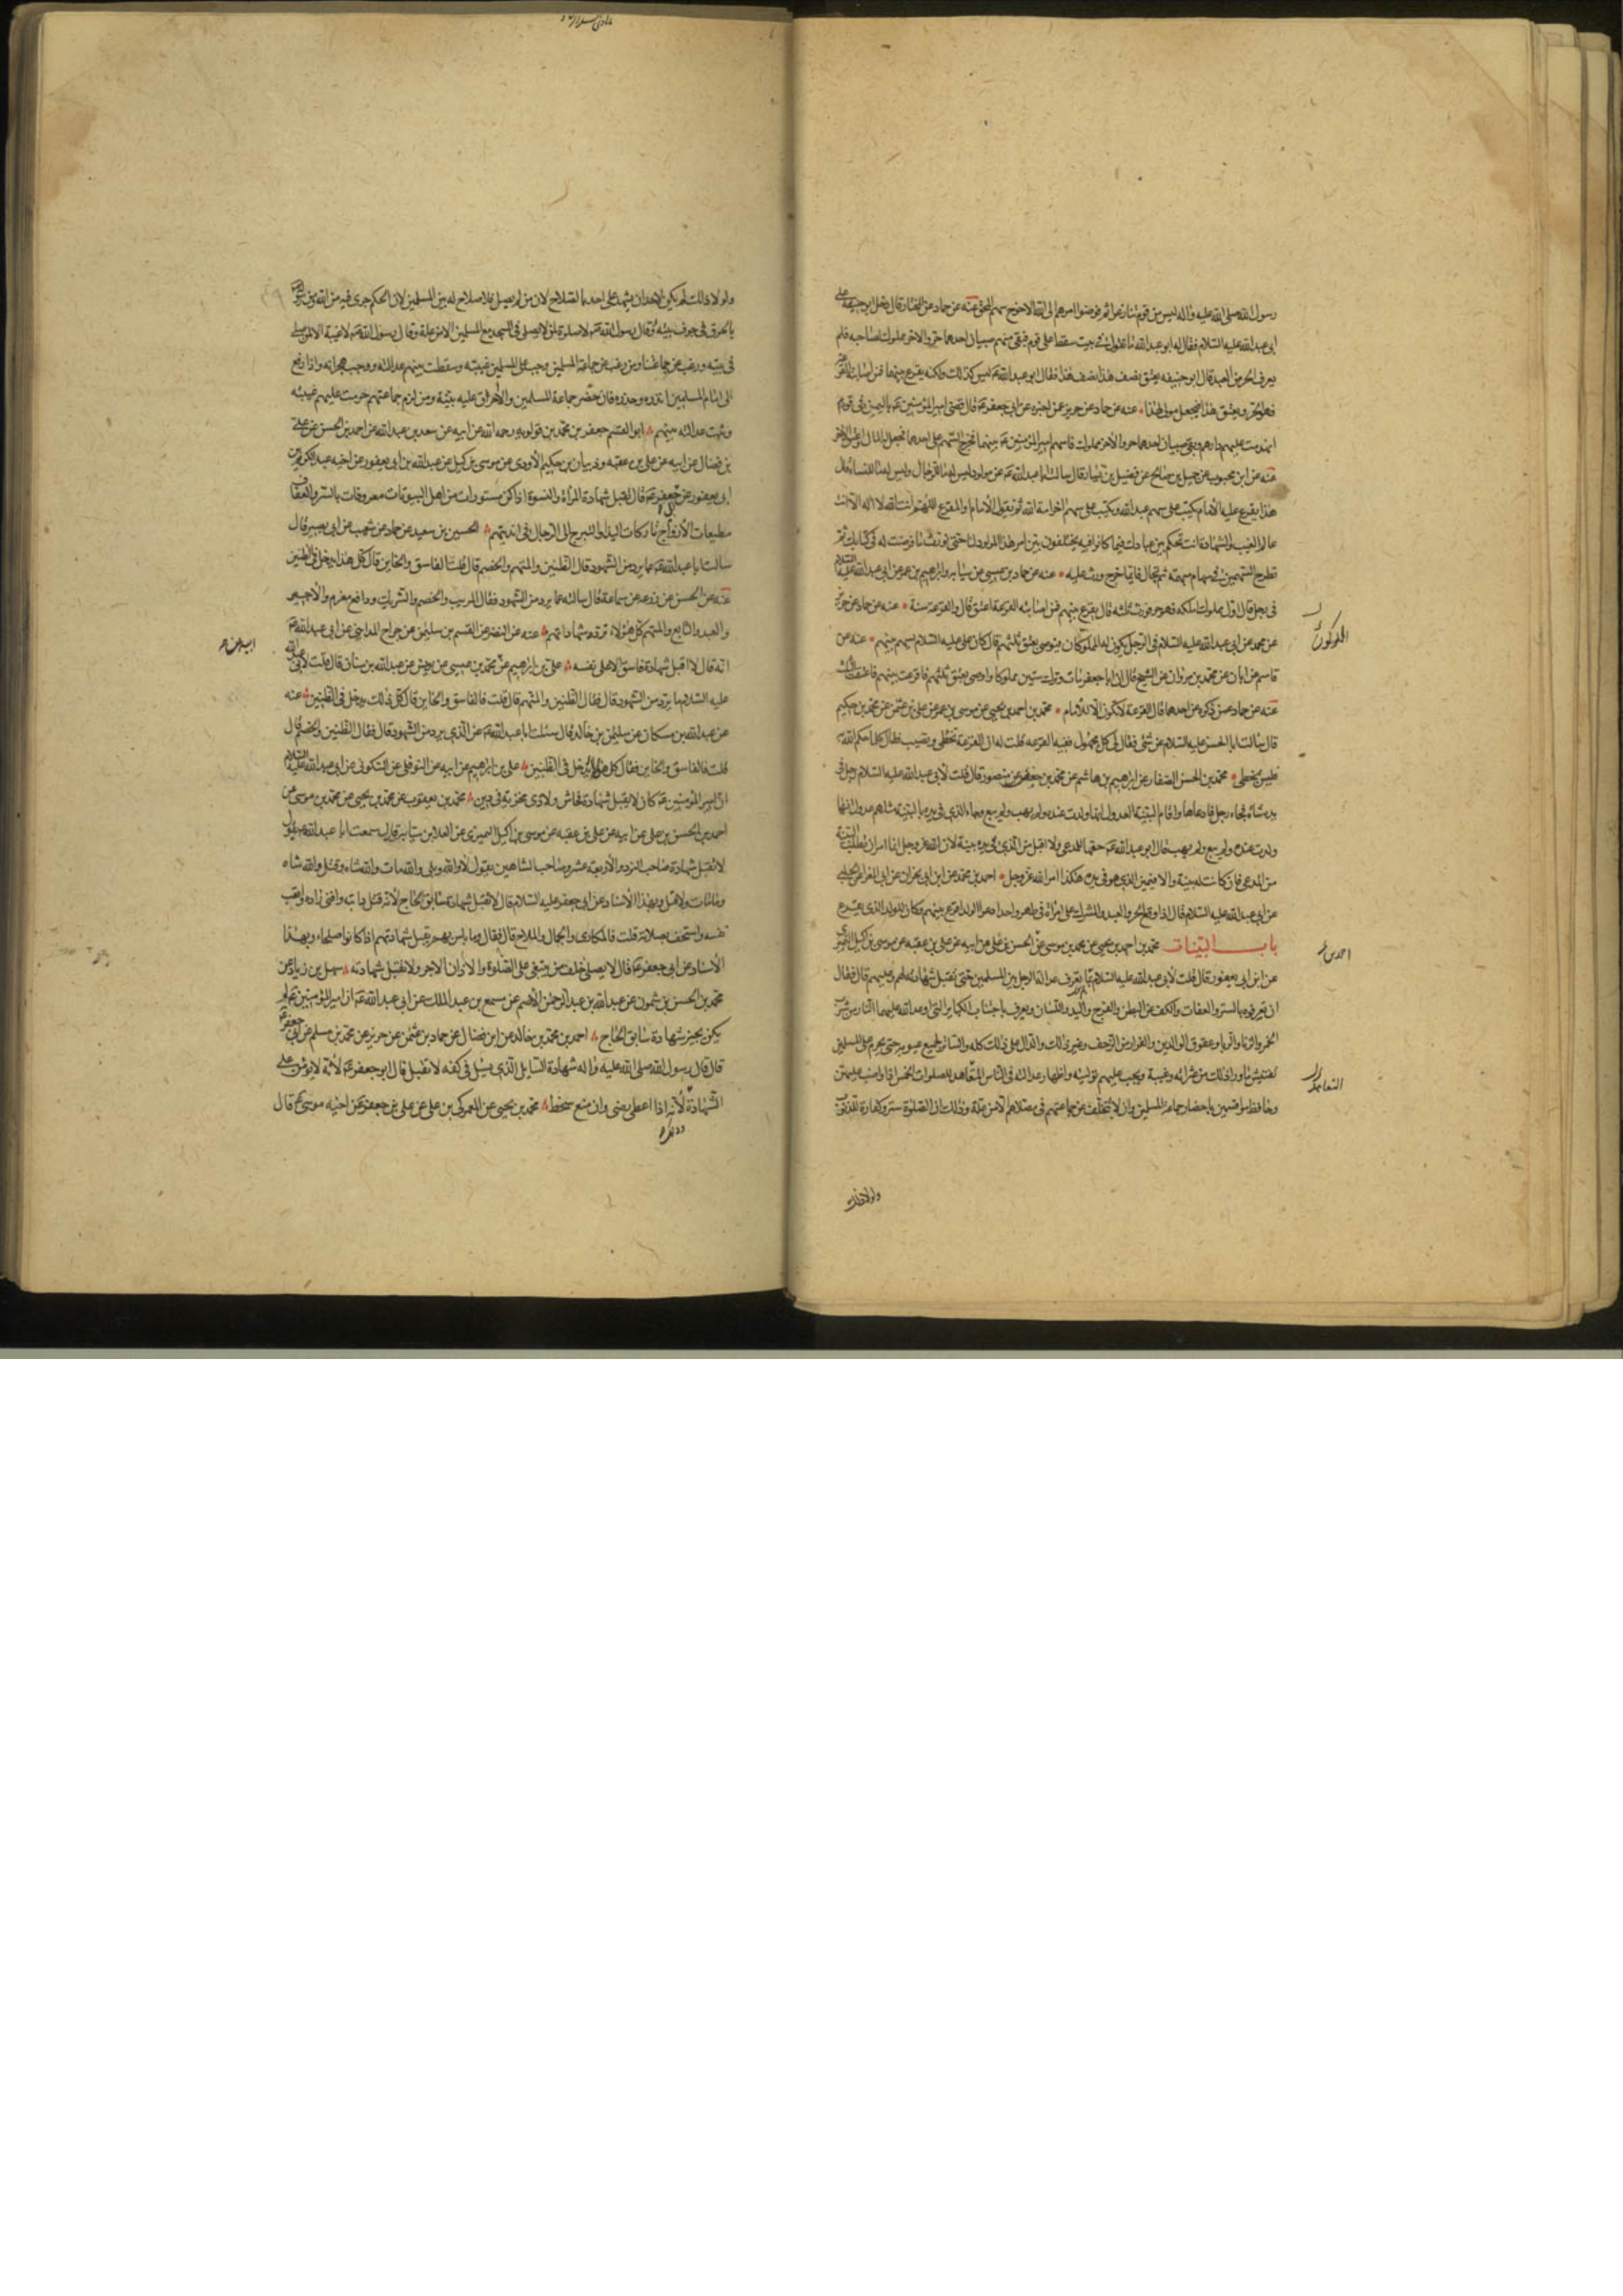 رسول الله صلى الله عليه واله ليس من قوم تنازعوا ثم فوضوا امرهم الى الله الا خرج سهم المحق عنه عن حماد عن المختار قال دخل ابو حنيفة على
ابى عبد الله عليه السلام فقال له ابو عبد الله ما تقول فى بيت سقط على قوم فبقى منهم صبيان احدهما حر والاخر مملوك لصاحبه فلم
يعرف الحر من العبد قال ابو حنيفه يعتق نصف هذا ونصف هذا فقال ابو عبد الله ع ليس كذلك ولكنه يقرع بينهما فمن اصابته القرعة
فهو الحر ويعتق هذا فيجعل مولى لهذا عنه عن حماد عن حريز عمن اخبره عن ابى جعفر ع قال قضى امير المؤمنين ع باليمن فى قوم
انهدمت عليهم دارهم وبقى صبيان احدهما حر والاخر مملوك فاسهم امير المؤمنين ع بينهما فخرج السهم على احدهما فجعل المال له واعتق الاخر
عنه عن ابن محبوب عن جميل بن صالح عن فضيل بن يسار قال سالت ابا عبد الله ع عن مولود ليس له ما للرجال وليس له ما للنساء قال
هذا يقرع عليه الامام يكتب على سهم عبد الله ويكتب على سهم اخر امة الله ثم يقول الامام او المقرع اللهم انت الله لا اله الا انت
عالم الغيب والشهادة انت تحكم بين عبادك فيما كانوا فيه يختلفون بين امر هذا المولود لنا حتى يورث ما فرضت له فى كتابك ثم
تطرح السهمين فى سهام مبهمة ثم تجال فايهما خرج ورث عليه عنه عن حماد بن عيسى عن سيابه وابراهيم بن عمر عن ابى عبد الله عليه السلام
فى رجل قال اول مملوك املكه فهو حر فورث ثلثه قال يقرع بينهم فمن اصابته القرعة اعتق قال والقرعة سنة عنه عن حماد عن حريز
عن محمد عن ابى عبد الله عليه السلام فى الرجل يكون له المملوكان فيوصى بعتق ثلثهم قال كان على عليه السلام يسهم بينهم عنه عن
قاسم عن ابان عن محمد بن مروان عن الشيخ قال ان ابا جعفر مات وترك ستين مملوكا واوصى بعتق ثلثهم فاقرعت بينهم فاعتقت الثلث
عنه عن حماد عمن ذكره عن احدهما قال القرعة لا تكون الا للامام محمد بن احمد بن يحيى عن موسى بن عمر عن على بن عثمن عن محمد بن حكيم
قال سالت ابا الحسن عليه السلام عن شئ فقال لى كل مجهول ففيه القرعه قلت له ان القرعة تخطى وتصيب فقال كلما حكم الله به
فليس بمخطى محمد بن الحسن الصفار عن ابراهيم بن هاشم عن محمد بن حفص عن منصور قال قلت لابى عبد الله عليه السلام رجل فى
يده شاة فجاء رجل فادعاها واقام البينة العدول انها ولدت عنده ولم يهب ولم يبع وجاء الذى فى يده بالبينة مثلهم عدول انها
ولدت عنده ولم يبع ولم يهب قال ابو عبد الله ع حقها للمدعى ولا اقبل من الذى فى يده بينة لان الله عز وجل انما امر ان تطلب البينة
من المدعى فان كانت له بينة والا فيمين الذى هو فى يده هكذا امر الله عز وجل احمد بن محمد عن ابن ابى نجران عن ابى المغرا عن الحلبى
عن ابى عبد الله عليه السلام قال اذا وقع الحر والعبد والمشرك على امراة فى طهر واحد ادعوا الولد اقرع بينهم وكان الولد للذى يقرع
باب البينات محمد بن احمد بن يحيى عن محمد بن موسى عن الحسن بن على عن ابيه عن على بن عقبه عن موسى بن اكيل النميرى
عن ابن ابى يعفور قال قلت لابى عبد الله عليه السلام بما يعرف عدالة الرجل بين المسلمين حتى تقبل شهادته لهم وعليهم قال فقال
ان تعرفوه بالستر والعفاف والكف عن البطن والفرج واليد واللسان ويعرف باجتناب الكباير التى وعد الله عليها النار من شرب
الخمر والزنا والربا وعقوق الوالدين والفرار من الزحف وغير ذلك والدال على ذلك كله والساتر لجميع عيوبه حتى يحرم على المسلمين
تفتيش ما وراء ذلك من عثراته وغيبة ويجب عليهم توليته واظهار عدالته فى الناس المتعاهد للصلوات الخمس اذا واظب عليهن
وحافظ مواقيتهن باحضار جماعة المسلمين وان لا يتخلف عن جماعتهم فى مصلاهم الا من علة وذلك ان الصلوة ستر وكفارة للذنوب
ولولا ذلك
المملوكون
احمد بن
التعاهد
ولولا ذلك لم يكن لاحد ان يشهد على احد بالصلاح لان من لم يصل فلا صلاح له بين المسلمين لان الحكم جرى فيه من الله ومن رسوله
بالحرق فى جوف بيته وقال رسول الله ص لا صلوة لمن لا يصلى فى المسجد مع المسلمين الا من علة وقال رسول الله ص لا غيبة الا لمن صلى
فى بيته ورغب عن جماعتنا ومن رغب عن جماعة المسلمين وجب على المسلمين غيبته وسقطت بينهم عدالته ووجب هجرانه واذا رفع
الى امام المسلمين انذره وحذره فان حضر جماعة المسلمين والا احرق عليه بيته ومن لزم جماعتهم حرمت عليهم غيبته
وثبت عدالته بينهم ابو القسم جعفر بن محمد بن قولويه رحمه الله عن ابيه عن سعد بن عبد الله عن احمد بن الحسن بن على
بن فضال عن ابيه عن على بن عقبه وذبيان بن حكيم الاودى عن موسى بن اكيل عن عبد الله بن ابى يعفور عن اخيه عبد الكريم بن
ابى يعفور عن ابى جعفر ع قال تقبل شهادة المراة والنسوة اذا كن مستورات من اهل البيوتات معروفات بالستر والعفاف
مطيعات للازواج تاركات البذاء والتبرج الى الرجال فى انديتهم الحسين بن سعيد عن حماد عن شعيب عن ابى بصير قال
سالت ابا عبد الله ع عما يرد من الشهود قال الظنين والمتهم والخصم قال قلت الفاسق والخاين قال كل هذا يدخل فى الظنين
عنه عن الحسن عن زرعه عن سماعة قال سالته عما يرد من الشهود فقال المريب والخصم والشريك ودافع مغرم والاجير
والعبد والتابع والمتهم كل هؤلاء ترد شهاداتهم عنه عن النضر عن القسم بن سليمن عن جراح المداينى عن ابى عبد الله ع
انه قال لا اقبل شهادة فاسق الا على نفسه على بن ابراهيم عن محمد بن عيسى عن يونس عن عبد الله بن سنان قال قلت لابى عبد الله
عليه السلام ما يرد من الشهود قال فقال الظنين والمتهم قال قلت فالفاسق والخاين قال كل ذلك يدخل فى الظنين عنه
عن عبد الله بن مسكان عن سليمن بن خالد قال سئلت ابا عبد الله ع عن الذى يرد من الشهود قال فقال الظنين والخصم قال
قلت فالفاسق والخاين فقال كل هذا يدخل فى الظنين على بن ابراهيم عن ابيه عن النوفلى عن السكونى عن ابى عبد الله عليه السلام
ان امير المؤمنين ع كان لا يقبل شهادة فحاش ولا ذى مخزية فى دين محمد بن يعقوب عن محمد بن يحيى عن محمد بن موسى عن
احمد بن الحسن بن على عن ابيه عن على بن عقبه عن موسى بن اكيل النميرى عن العلا بن سيابه قال سمعت ابا عبد الله ع يقول
لا تقبل شهادة صاحب النرد والاربعة عشر وصاحب الشاهين يقول لا والله وبلى والله مات والله شاه وقتل والله شاه
وما مات ولا قتل وبهذا الاسناد عن ابى جعفر عليه السلام قال لا تقبل شهادة سابق الحاج لانه قتل راحلته وافنى زاده واتعب
نفسه واستخف بصلاته قلت فالمكارى والجمال والملاح قال فقال وما باس بهم تقبل شهادتهم اذا كانوا صلحاء وبهذا
الاسناد عن ابى جعفر ع قال لا يصلى خلف من يبتغى على الصلوة والاذان الاجر ولا تقبل شهادته سهل بن زياد عن
محمد بن الحسن بن شمون عن عبد الله بن عبد الرحمن الاصم عن مسمع بن عبد الملك عن ابى عبد الله ع ان امير المؤمنين ع لم
يكن يجيز شهادة سابق الحاج احمد بن محمد بن خالد عن ابن فضال عن حماد بن عثمن عن حريز عن محمد بن مسلم عن ابى جعفر ع
قال قال رسول الله صلى الله عليه واله شهادة السايل الذى يسئل فى كفه لا تقبل قال ابو جعفر ع لانه لا يؤمن على
الشهادة لانه اذا اعطى رضى وان منع سخط محمد بن يحيى عن العمركى بن على عن على بن جعفر عن اخيه موسى ع قال